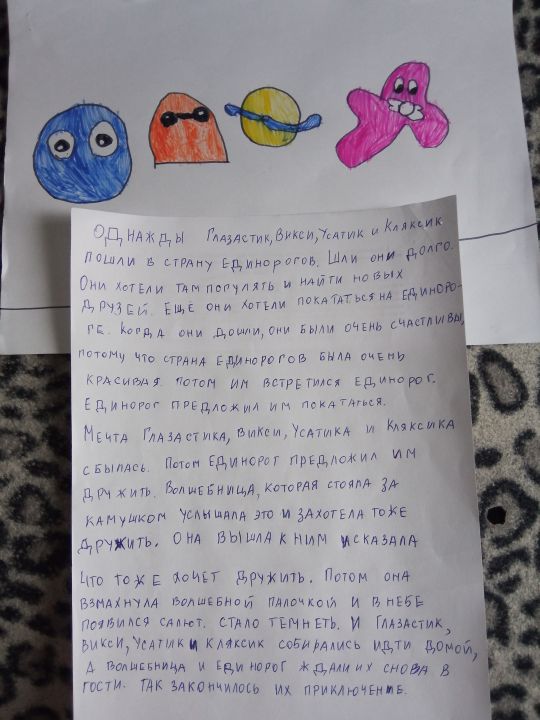 ОДНАЖДЫ ГЛАЗАСТИК, ВИКСИ, УСАТИК И КЛЯКСИК
ПОШЛИ В СТРАНУ ЕДИНОРОГОВ. ШЛИ ОНИ ДОЛГО.
ОНИ ХОТЕЛИ ТАМ ПОГУЛЯТЬ И НАЙТИ НОВЫХ
ДРУЗЕЙ. ЕЩЁ ОНИ ХОТЕЛИ ПОКАТАТЬСЯ НА ЕДИНОРО-
ГЕ. КОГДА ОНИ ДОШЛИ, ОНИ БЫЛИ ОЧЕНЬ СЧАСТЛИВЫ,
ПОТОМУ ЧТО СТРАНА ЕДИНОРОГОВ БЫЛА ОЧЕНЬ
КРАСИВАЯ. ПОТОМ ИМ ВСТРЕТИЛСЯ ЕДИНОРОГ.
ЕДИНОРОГ ПРЕДЛОЖИЛ ИМ ПОКАТАТЬСЯ.
МЕЧТА ГЛАЗАСТИКА, ВИКСИ, УСАТИКА И КЛЯКСИКА
СБЫЛАСЬ. ПОТОМ ЕДИНОРОГ ПРЕДЛОЖИЛ ИМ
ДРУЖИТЬ. ВОЛШЕБНИЦА, КОТОРАЯ СТОЯЛА ЗА
КАМУШКОМ УСЛЫШАЛА ЭТО И ЗАХОТЕЛА ТОЖЕ
ДРУЖИТЬ. ОНА ВЫШЛА К НИМ И СКАЗАЛА
ЧТО ТОЖЕ ХОЧЕТ ДРУЖИТЬ. ПОТОМ ОНА
ВЗМАХНУЛА ВОЛШЕБНОЙ ПАЛОЧКОЙ И В НЕБЕ
ПОЯВИЛСЯ САЛЮТ. СТАЛО ТЕМНЕТЬ. И ГЛАЗАСТИК,
ВИКСИ, УСАТИК И КЛЯКСИК СОБИРАЛИСЬ ИДТИ ДОМОЙ,
А ВОЛШЕБНИЦА И ЕДИНОРОГ ЖДАЛИ ИХ СНОВА В
ГОСТИ. ТАК ЗАКОНЧИЛОСЬ ИХ ПРИКЛЮЧЕНИЕ.